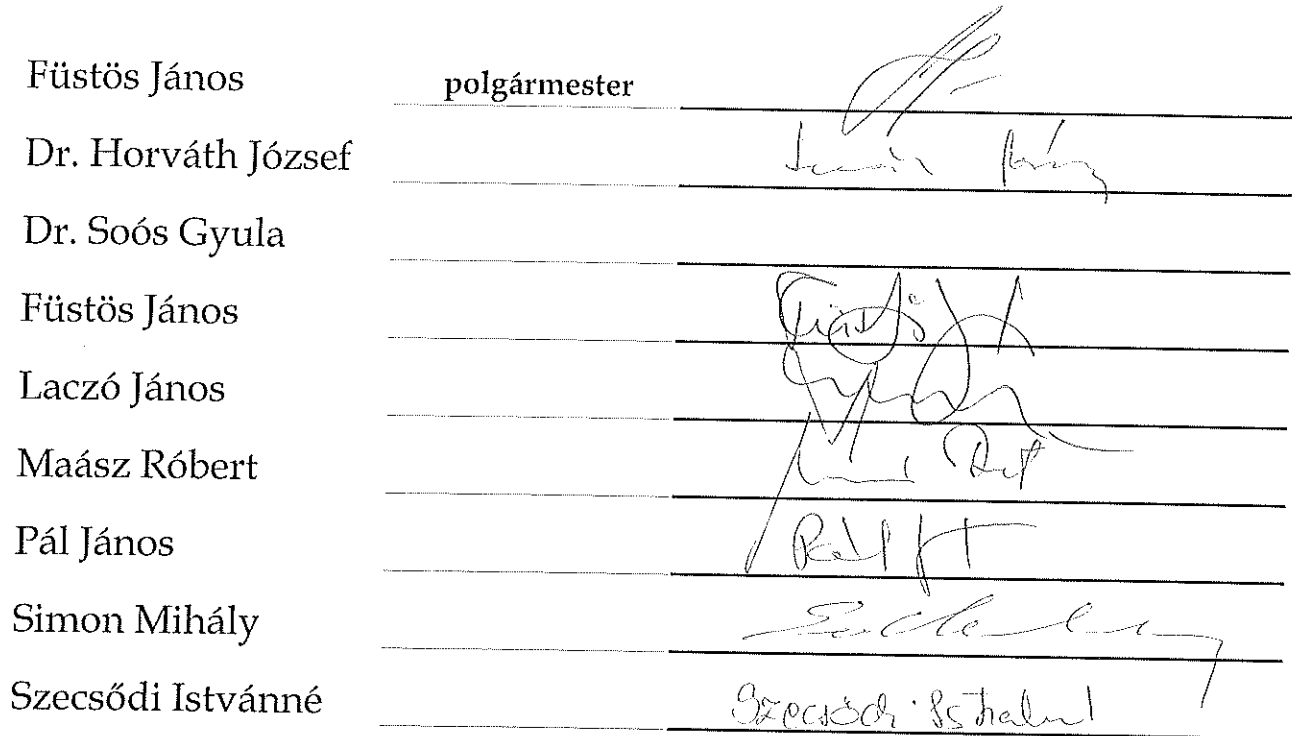 Füstös János polgármester
Dr. Horváth József
Dr. Soós Gyula
Füstös János
Füstös J
Laczó János
Maász Róbert
Pál János
Pál J
Simon Mihály
Szecsődi Istvánné
Szecsődi Istvánné